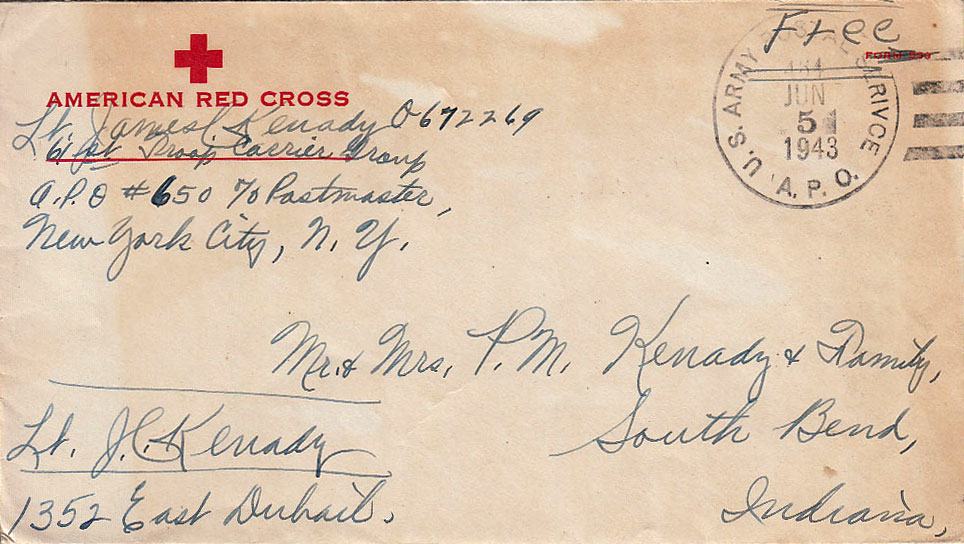 AMERICAN RED CROSS
Free
U.S. ARMY POSTAL SERIVCE
JUN
5
1943
A.P.O.
Lt. James C. Kenady O672269
61st Troop Carrier Group
A.P.O #650 % Postmaster,
New York City, N. Y.
Mr. & Mrs. P. M. Kenady & Family,
South Bend,
Indiana,
Lt. J.C. Kenady
1352 East Dubail.